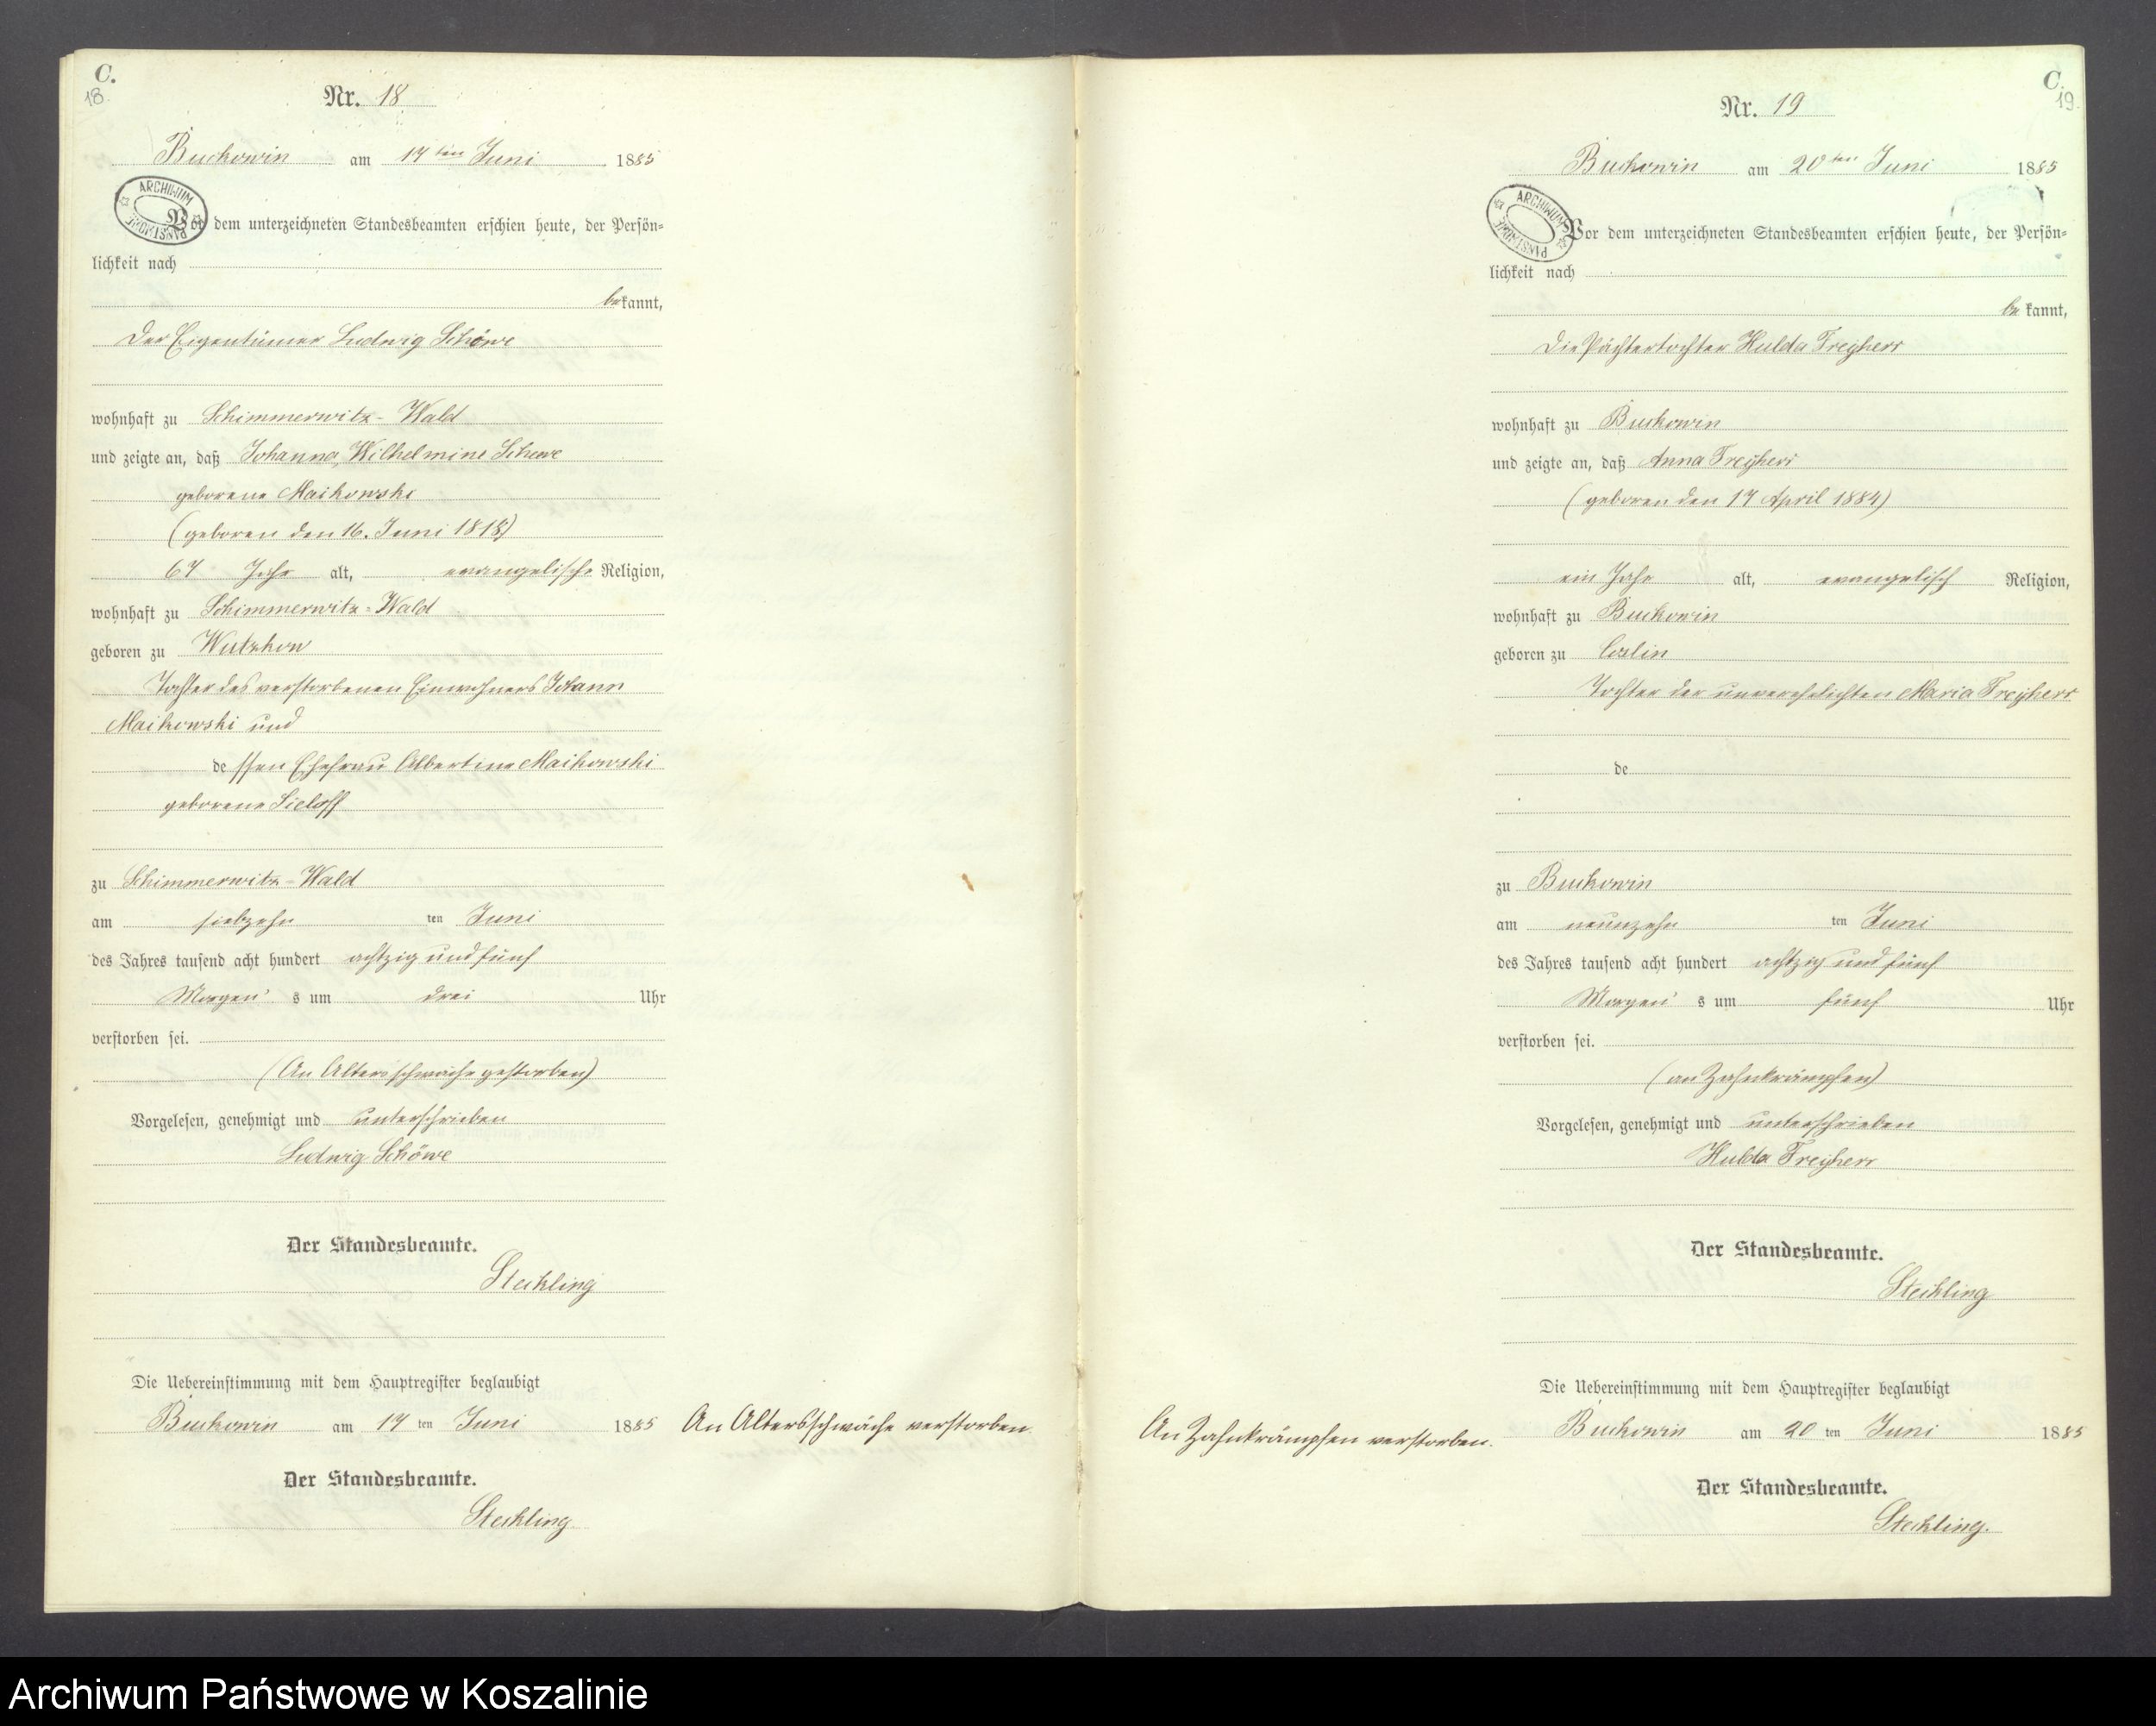 C.
18.
Nr. 18
Buckowin am 17ten Juni 1885
ARCHIWUM PAŃSTWOWE
Vor dem unterzeichneten Standesbeamten erschien heute, der Persön=
lichkeit nach
bekannt,
Der Eigentümer Ludwig Schöwe
wohnhaft zu Schimmerwitz-Wald
und zeigte an, daß Johanna, Wilhelmine Schewe
geborene Maikowski
(geboren den 16. Juni 1818)
67 Jahr alt, evangelische Religion,
wohnhaft zu Schimmerwitz=Wald
geboren zu Wutzkow
Tochter des verstorbenen Einwohners Johann
Maikowski und
dessen Ehefrau Albertine Maikowski
geborene Sieloff
zu Schimmerwitz-Wald
am siebzehn ten Juni
des Jahres tausend acht hundert achtzig und fünf
Morgen's um drei Uhr
verstorben sei.
(An Altersschwäche gestorben)
Vorgelesen, genehmigt und unterschrieben
Ludwig Schöwe
Der Standesbeamte.
Steckling
Die Uebereinstimmung mit dem Hauptregister beglaubigt
Buckowin am 17 ten Juni 1885
An Altersschwäche verstorben.
Der Standesbeamte.
Steckling
C.
19.
Nr. 19
Buckowin am 20ten Juni 1885
ARCHIWUM PAŃSTWOWE
Vor dem unterzeichneten Standesbeamten erschien heute, der Persön=
lichkeit nach
bekannt,
Die Pächtertochter Hulda Freyherr
wohnhaft zu Buckowin
und zeigte an, daß Anna Freyherr
(geboren den 17 April 1884)
ein Jahr alt, evangelisch Religion,
wohnhaft zu Buckowin
geboren zu Coslin
Tochter der unverehelichten Maria Freyherr
de
zu Buckowin
am neunzehn ten Juni
des Jahres tausend acht hundert achtzig und fünf
Morgen's um fünf Uhr
verstorben sei.
(an Zahnkrämpfen)
Vorgelesen, genehmigt und unterschrieben
Hulda Freyherr
Der Standesbeamte.
Steckling
Die Uebereinstimmung mit dem Hauptregister beglaubigt
An Zahnkrämpfen verstorben.
Buckowin am 20 ten Juni 1885
Der Standesbeamte.
Steckling.
Archiwum Państwowe w Koszalinie